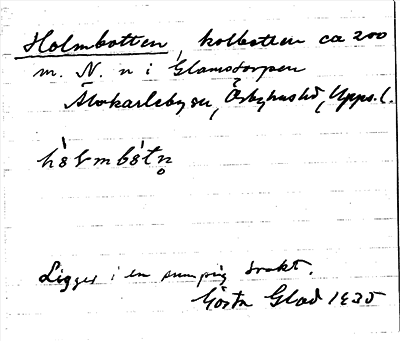 Holmbotten, kolbotten ca 200
m. N. n i Glamstorpen
Älvkarleby sn, Örbyhus hd, Upps. l.
Ligger i en sumpig trakt.
Gösta Glad 1935